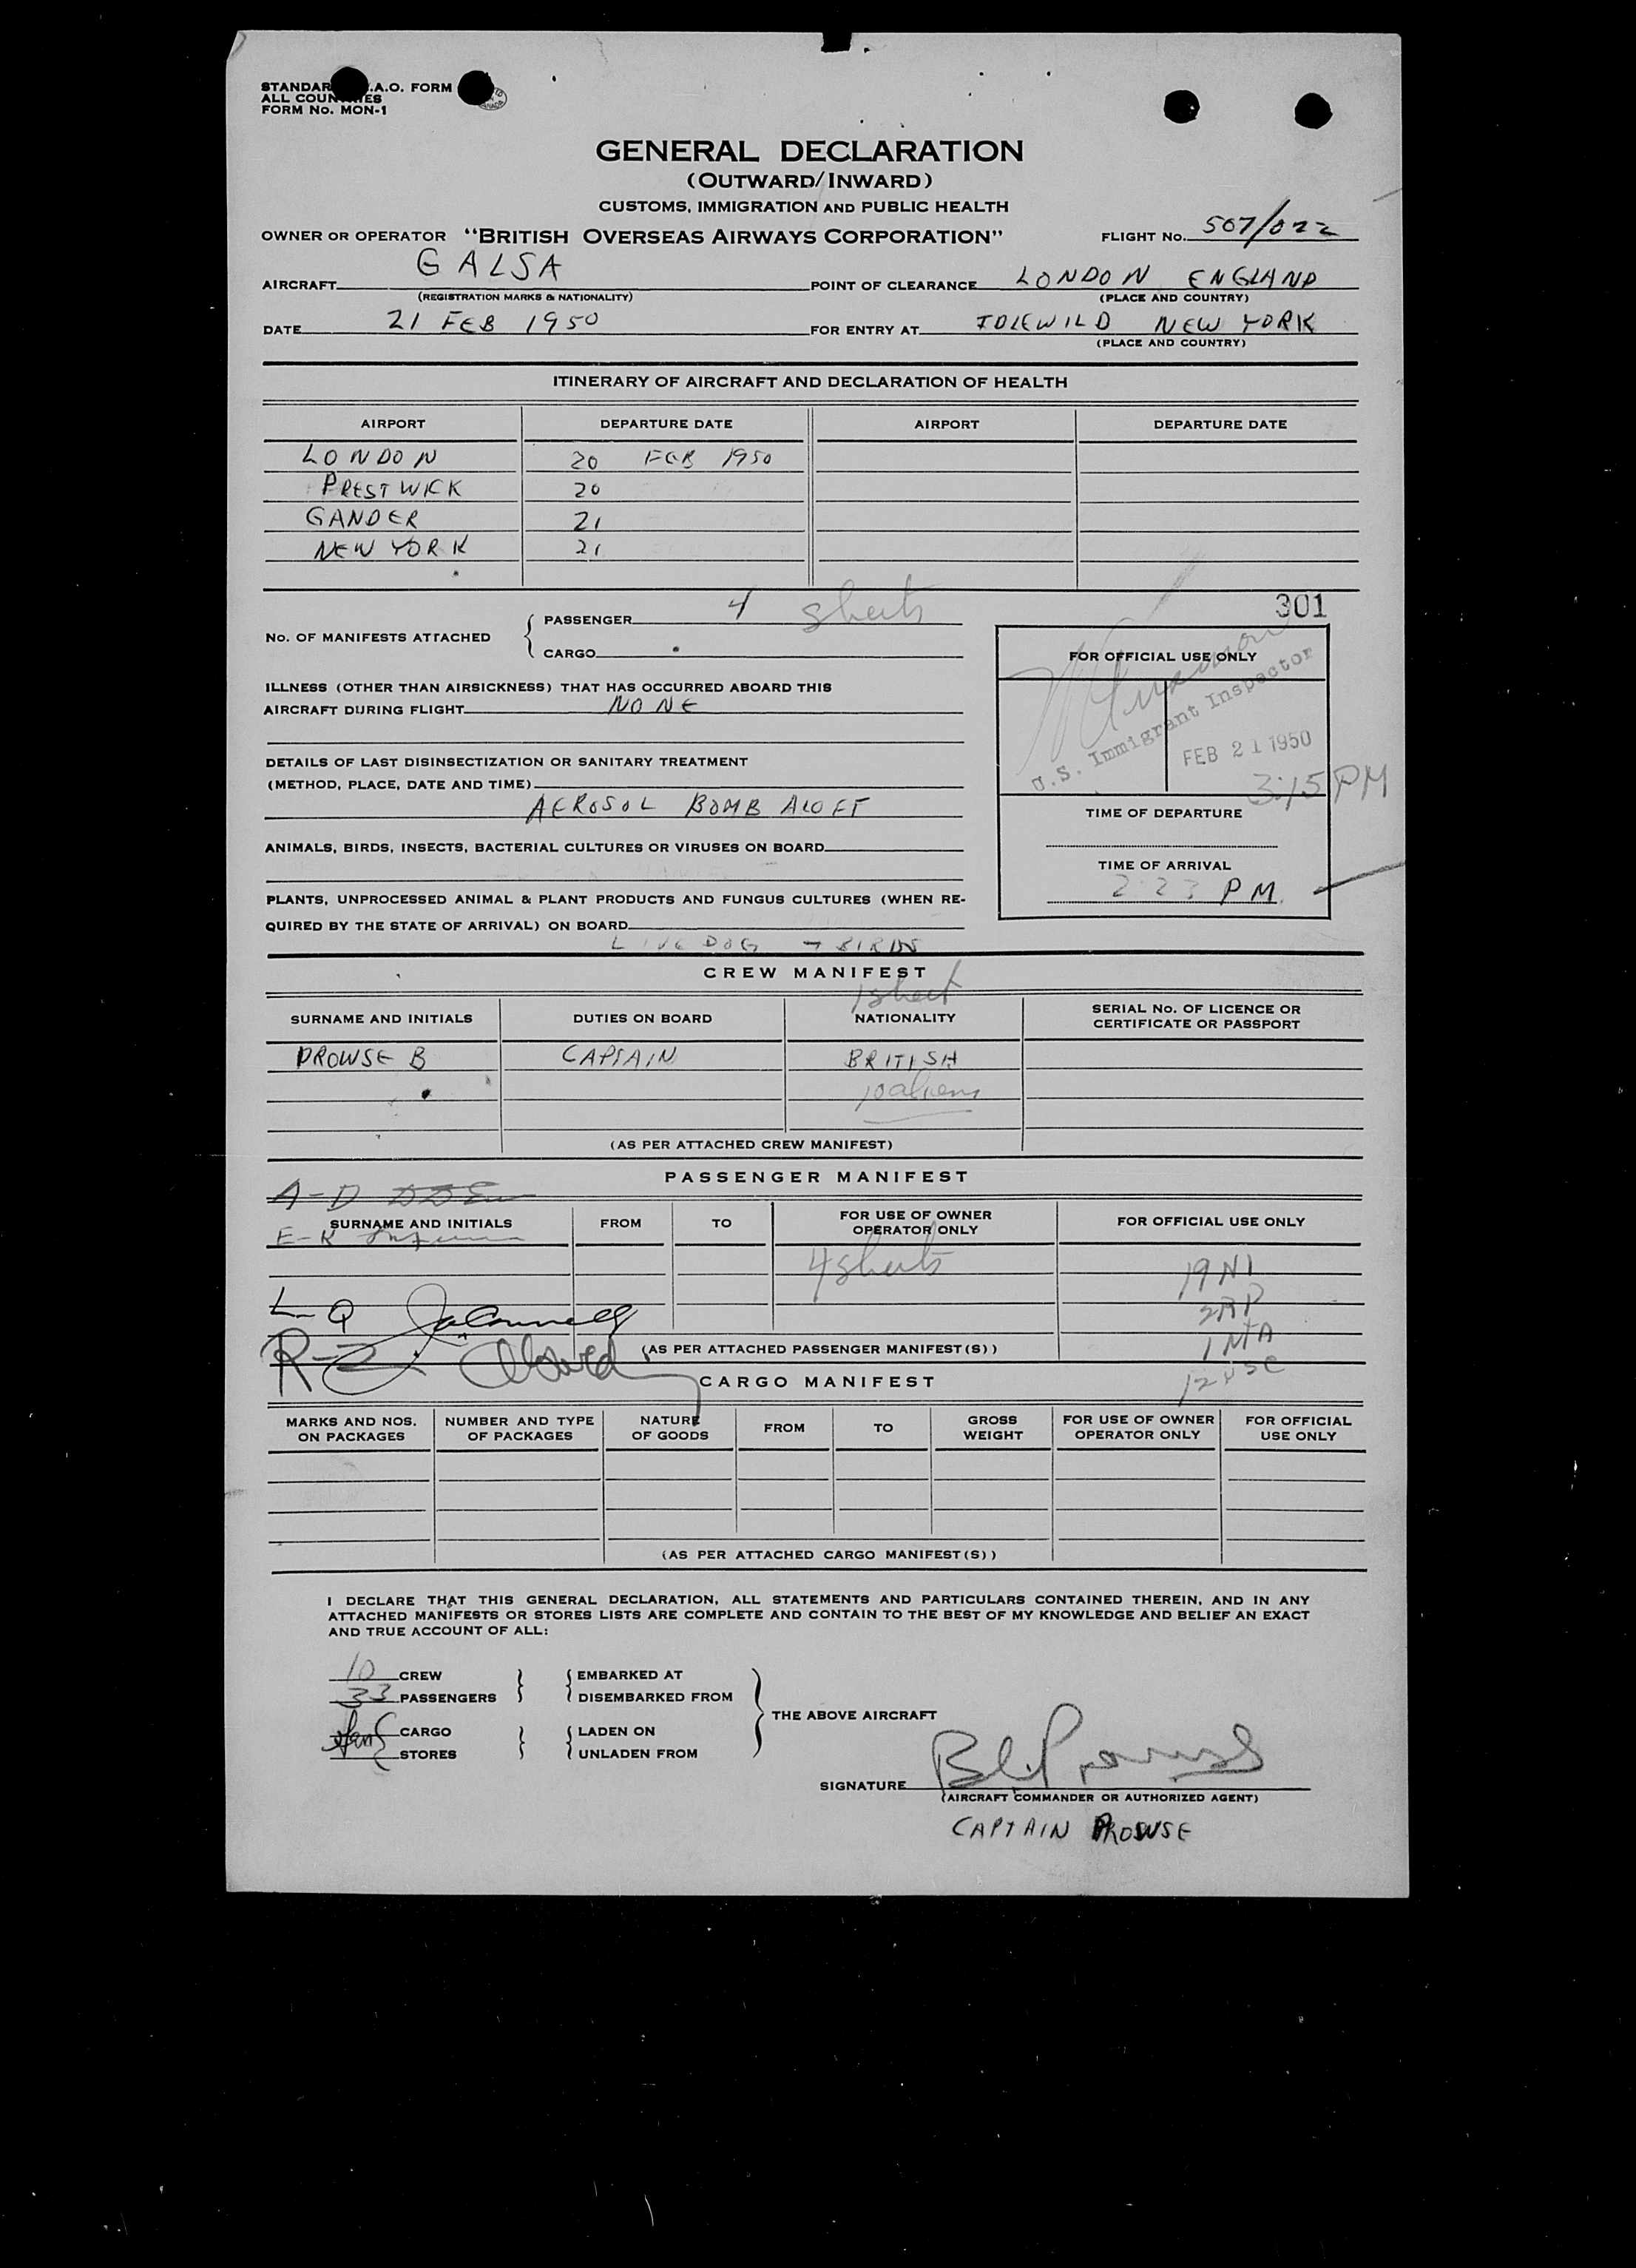 STANDARD .A.O. FORM
ALL COUNTRIES
FORM No. MON-1
GENERAL DECLARATION
(OUTWARD/INWARD)
CUSTOMS, IMMIGRATION AND PUBLIC HEALTH
OWNER OR OPERATOR "BRITISH OVERSEAS AIRWAYS CORPORATION" FLIGHT No. 507/022
AIRCRAFT GALSA POINT OF CLEARANCE LONDON ENGLAND
(REGISTRATION MARKS & NATIONALITY) (PLACE AND COUNTRY)
DATE 21 FEB 1950 FOR ENTRY AT IDLEWILD NEW YORK
(PLACE AND COUNTRY)
ITINERARY OF AIRCRAFT AND DECLARATION OF HEALTH
AIRPORT DEPARTURE DATE AIRPORT DEPARTURE DATE
LONDON 20 FEB 1950
PRESTWICK 20
GANDER 21
NEW YORK 21
301
No. OF MANIFESTS ATTACHED
PASSENGER 4 sheets
CARGO
ILLNESS (OTHER THAN AIRSICKNESS) THAT HAS OCCURRED ABOARD THIS
AIRCRAFT DURING FLIGHT NONE
DETAILS OF LAST DISINSECTIZATION OR SANITARY TREATMENT
(METHOD, PLACE, DATE AND TIME)
AEROSOL BOMB ALOFT
ANIMALS, BIRDS, INSECTS, BACTERIAL CULTURES OR VIRUSES ON BOARD
PLANTS, UNPROCESSED ANIMAL & PLANT PRODUCTS AND FUNGUS CULTURES (WHEN RE-
QUIRED BY THE STATE OF ARRIVAL) ON BOARD
LIVE DOG BIRDS
FOR OFFICIAL USE ONLY
U.S. Immigrant Inspector
FEB 21 1950
3:15 PM
TIME OF DEPARTURE
TIME OF ARRIVAL
2 23 PM
CREW MANIFEST
1 sheet
SURNAME AND INITIALS DUTIES ON BOARD NATIONALITY SERIAL No. OF LICENCE OR
CERTIFICATE OR PASSPORT
PROWSE B CAPTAIN BRITISH
10 aliens
(AS PER ATTACHED CREW MANIFEST)
PASSENGER MANIFEST
A-D
SURNAME AND INITIALS FROM TO FOR USE OF OWNER
OPERATOR ONLY FOR OFFICIAL USE ONLY
E-K
4 sheets
19 NI
2 RP
L-Q
1 NIA
R-Z
(AS PER ATTACHED PASSENGER MANIFEST(S))
12 USC
CARGO MANIFEST
MARKS AND NOS.
ON PACKAGES NUMBER AND TYPE
OF PACKAGES NATURE
OF GOODS FROM TO GROSS
WEIGHT FOR USE OF OWNER
OPERATOR ONLY FOR OFFICIAL
USE ONLY
(AS PER ATTACHED CARGO MANIFEST(S))
I DECLARE THAT THIS GENERAL DECLARATION, ALL STATEMENTS AND PARTICULARS CONTAINED THEREIN, AND IN ANY
ATTACHED MANIFESTS OR STORES LISTS ARE COMPLETE AND CONTAIN TO THE BEST OF MY KNOWLEDGE AND BELIEF AN EXACT
AND TRUE ACCOUNT OF ALL:
10 CREW EMBARKED AT
33 PASSENGERS DISEMBARKED FROM
THE ABOVE AIRCRAFT
CARGO LADEN ON
STORES UNLADEN FROM
SIGNATURE B Prowse
(AIRCRAFT COMMANDER OR AUTHORIZED AGENT)
CAPTAIN PROWSE